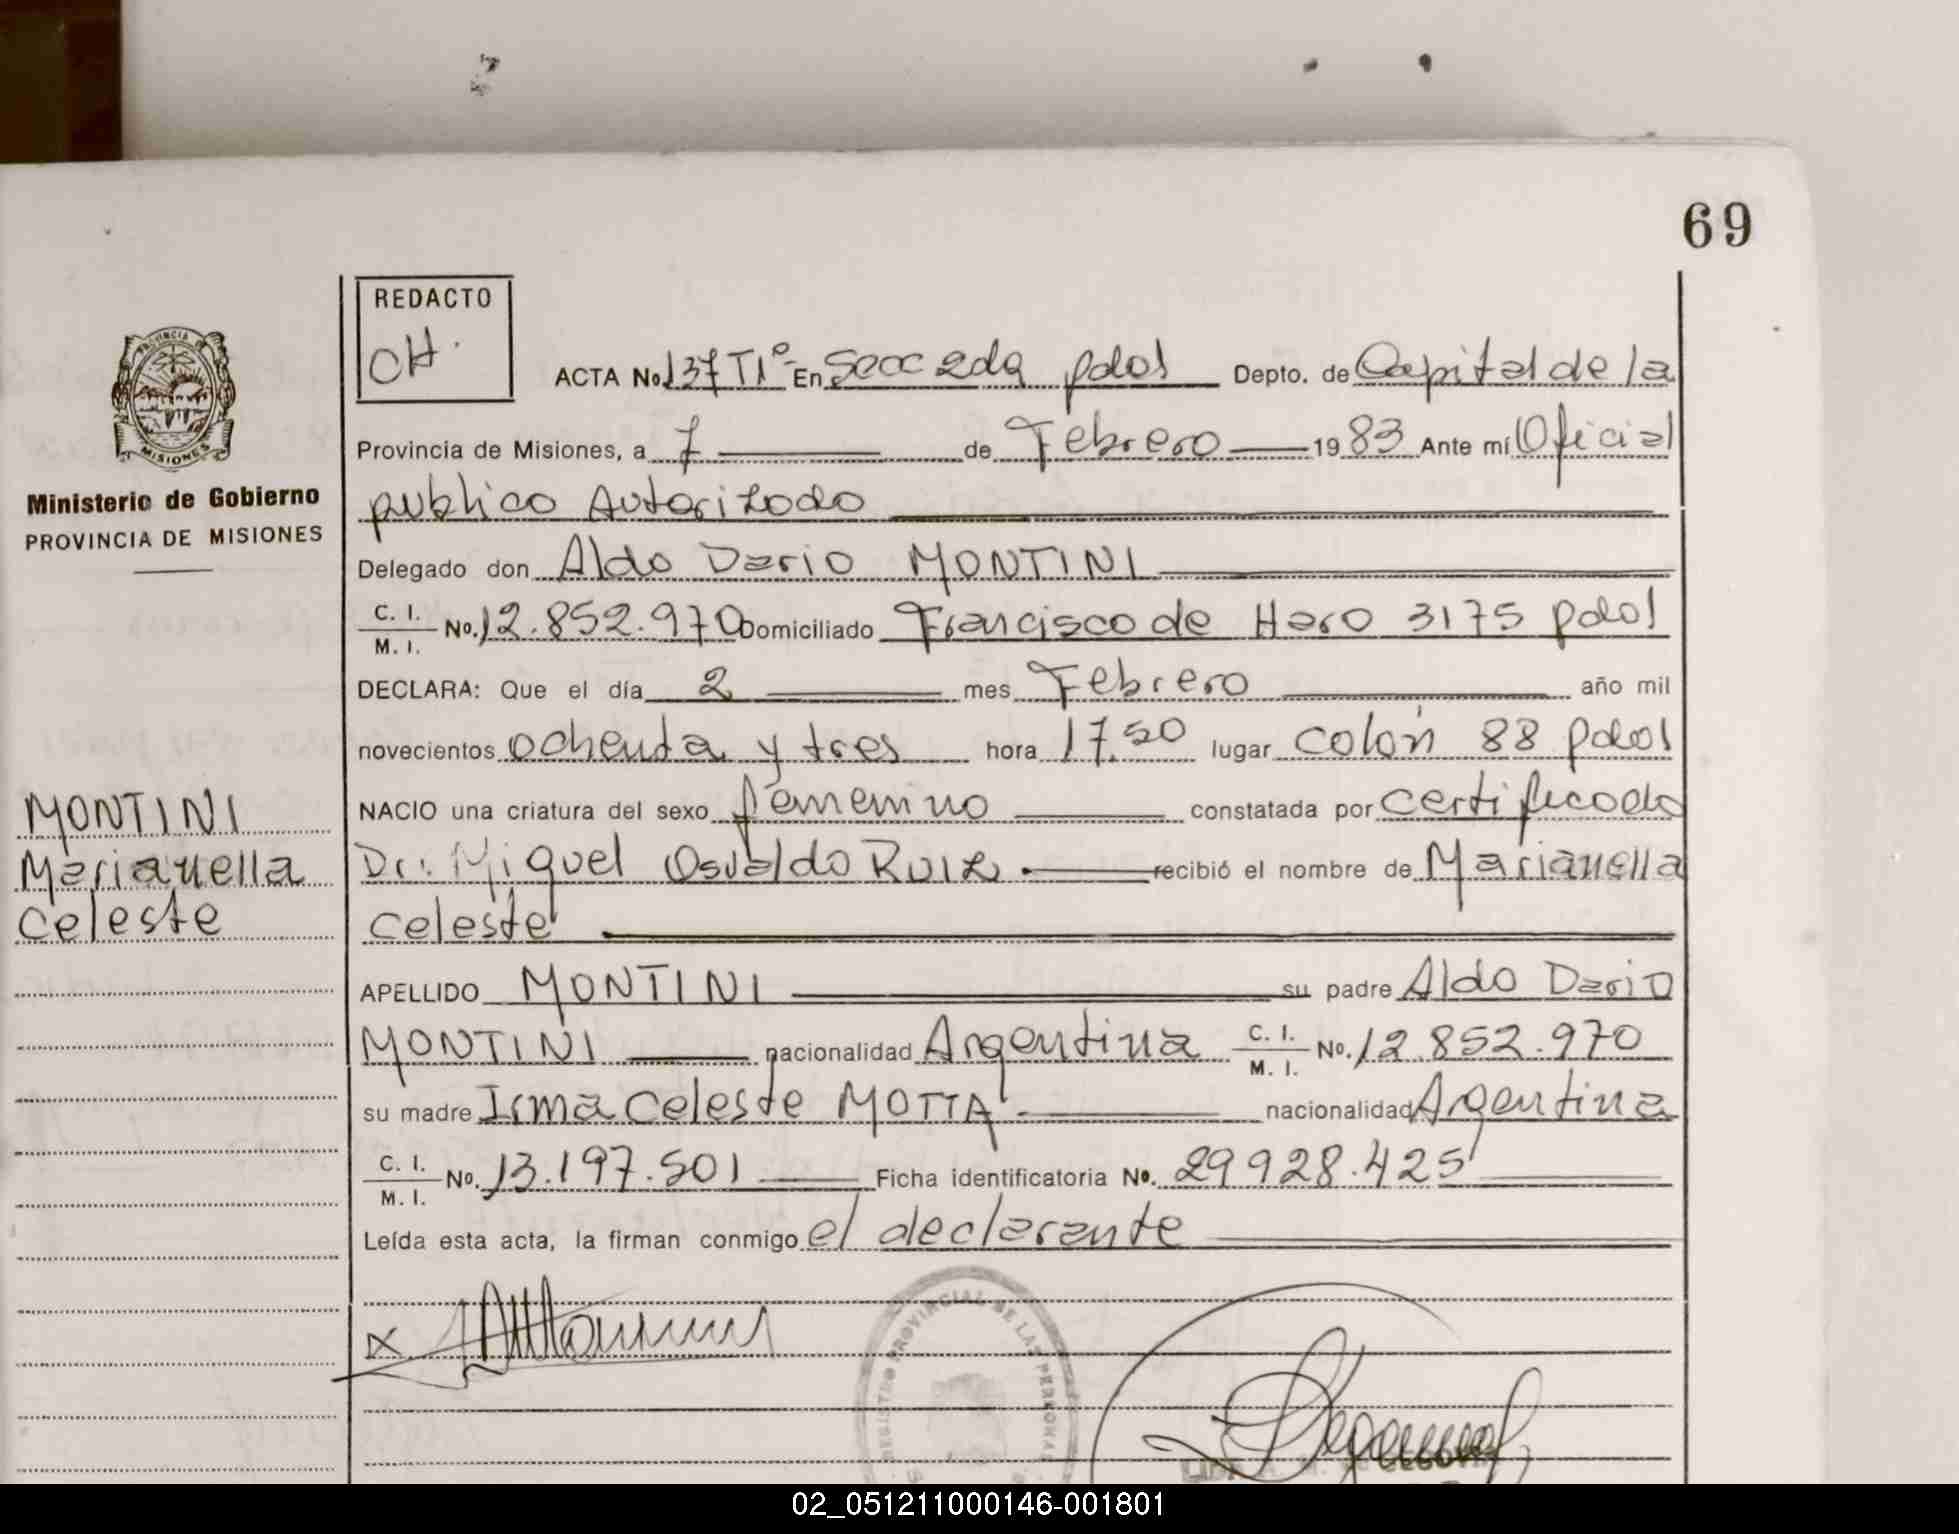 69
REDACTO
CH.
PROVINCIA
MISIONES
Ministerio de Gobierno
PROVINCIA DE MISIONES
ACTA No. 137 T1º En Secc 2da pdas Depto. de Capital de la
Provincia de Misiones, a 7 de Febrero 1983 Ante mí Oficial
publico Autorizado
Delegado don Aldo Dario MONTINI
C. I.
M. I. No. 12.852.970 Domiciliado Francisco de Haro 3175 pdas
DECLARA: Que el día 2 mes Febrero año mil
novecientos ochenta y tres hora 17.50 lugar colón 88 pdas
NACIO una criatura del sexo femenino constatada por certificado
Dr. Miguel Osvaldo RUIZ recibió el nombre de Marianella
celeste
MONTINI
Marianella
celeste
APELLIDO MONTINI su padre Aldo Dario
MONTINI nacionalidad Argentina C. I.
M. I. No. 12.852.970
su madre Irma Celeste MOTTA nacionalidad Argentina
C. I.
M. I. No. 13.197.501 Ficha identificatoria No. 29928.425
Leída esta acta, la firman conmigo el declarante
X
REGISTRO PROVINCIAL DE LAS PERSONAS
02_051211000146-001801